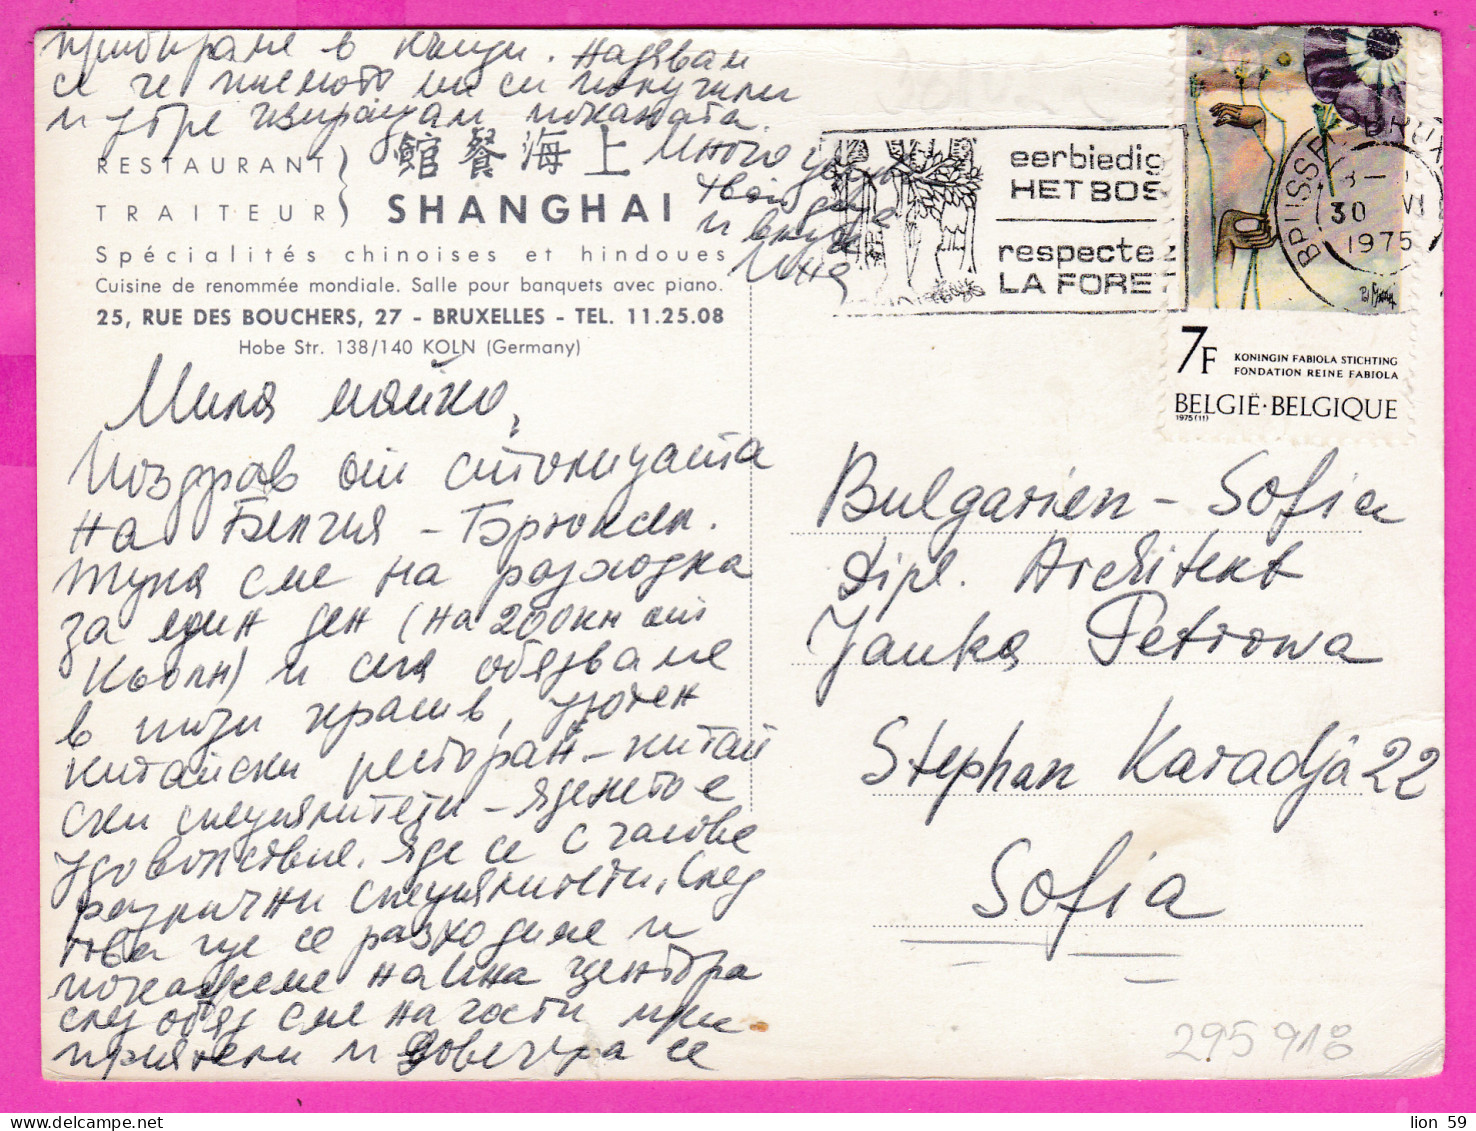 прибираме в Кьолн. Надявам
се че писмото ми си получила
и утре изпращам поканата.
Много
твои
и внука
RESTAURANT
TRAITEUR
館餐海上
SHANGHAI
Spécialités chinoises et hindoues
Cuisine de renommée mondiale. Salle pour banquets avec piano.
25, RUE DES BOUCHERS, 27 - BRUXELLES - TEL. 11.25.08
Hobe Str. 138/140 KOLN (Germany)
Мила майко,
Поздрав от столицата
на Белгия - Брюксел.
Тука сме на разходка
за един ден (на 200 км от
Кьолн) и сега обядваме
в този красив, уютен
китайски ресторант - китай
ски специалитети - яденето е
удоволствие. Яде се с часове
различни специалитети. След
това ще се разходиме и
покажеме на Ина центъра
след обяд сме на гости при
приятели и довечера се
eerbiedig
HET BOS
respectez
LA FORET
BRUSSEL BRUX
30 VI
1975
7F
KONINGIN FABIOLA STICHTING
FONDATION REINE FABIOLA
BELGIË·BELGIQUE
1975(11)
Bulgarien - Sofia
Dipl. Architekt
Janka Petrowa
Stephan Karadja 22
Sofia
295918
lion 59